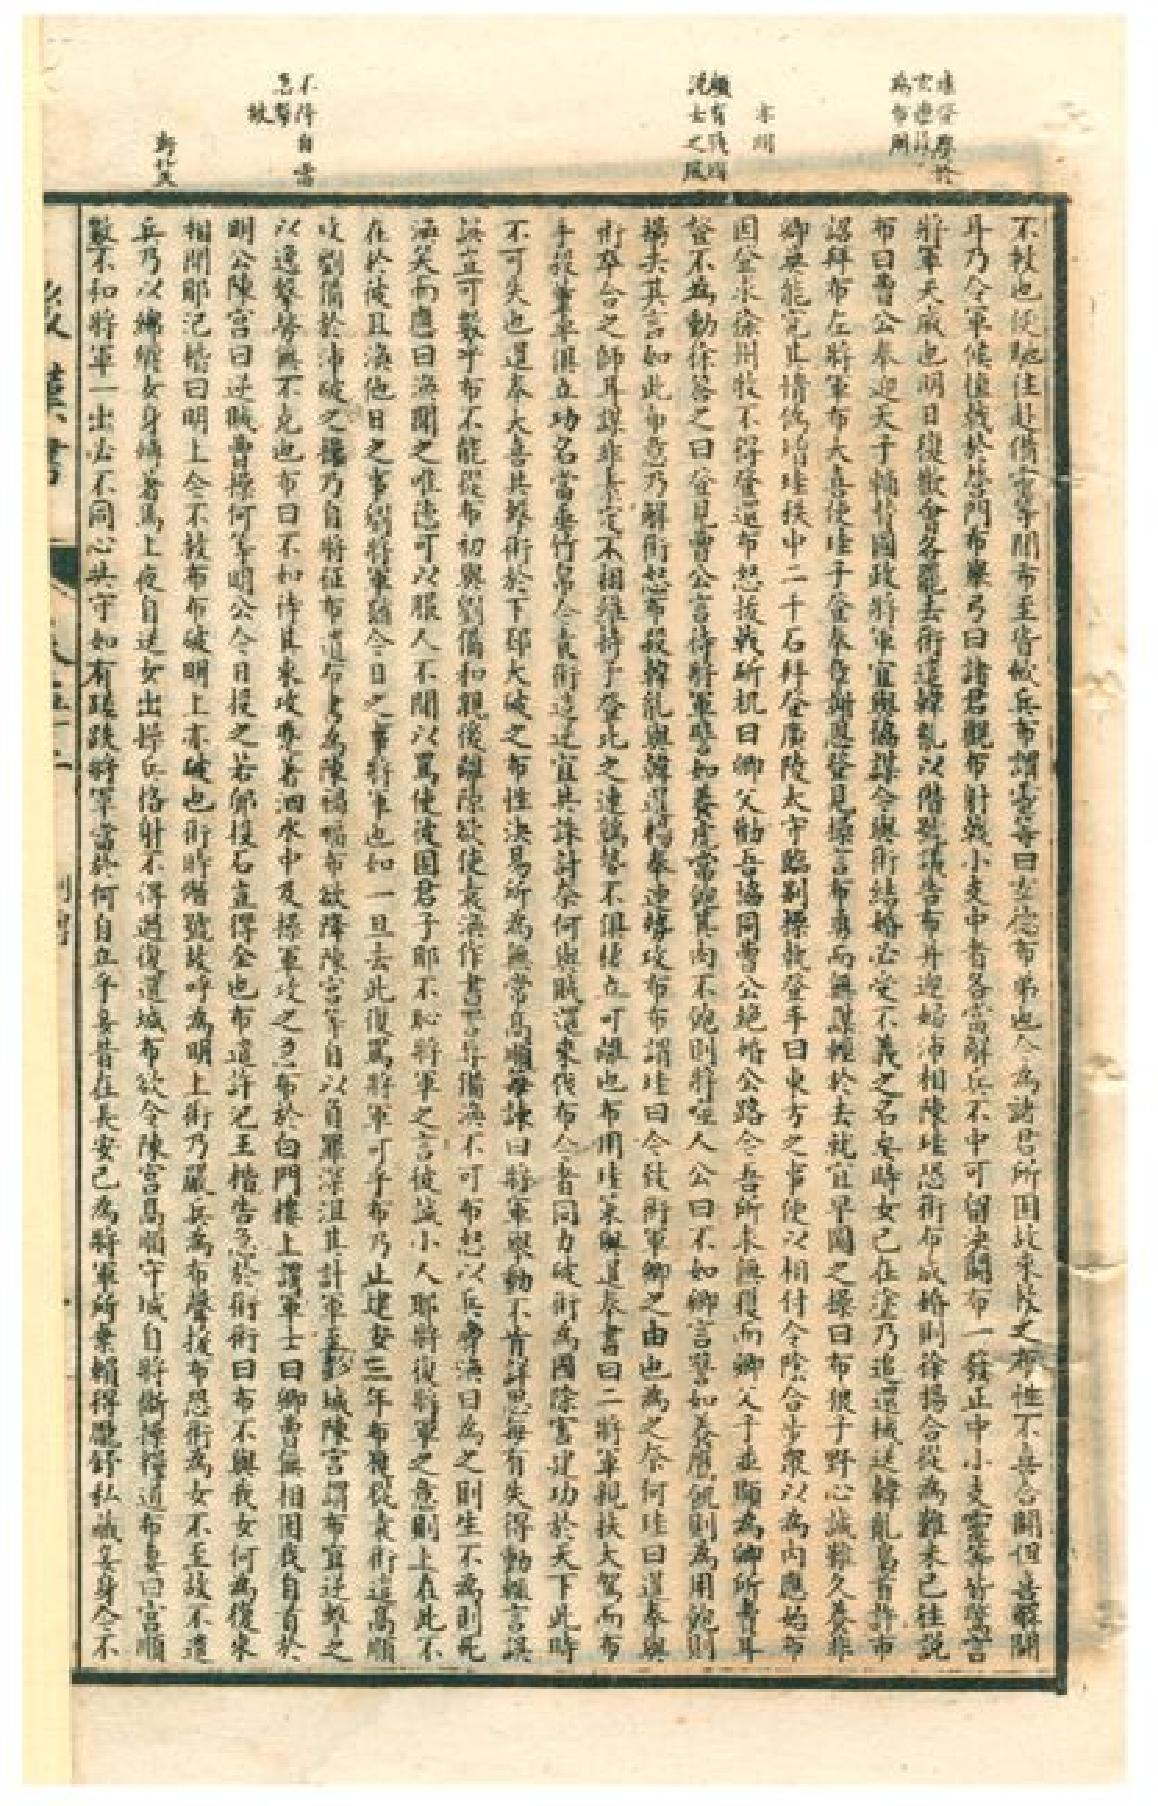 頗有戰國
說士之風
不救也便馳往赴備靈等聞布至皆斂兵布謂靈等曰玄德布弟也今為諸君所困故來救之布性不喜合鬭但喜解鬭
耳乃令軍候植戟於營門布彎弓曰諸君觀布射戟小支中者各當解兵不中可留決鬭布一發正中小支靈等皆驚言
將軍天威也明日復歡會各罷去術遣韓胤以僭號議告布并迎婦沛相陳珪恐術布成婚則徐揚合從為難未已往說
布曰曹公奉迎天子輔贊國政將軍宜與協謀今與術結婚必受不義之名矣時女已在塗乃追還械送韓胤梟首許市
詔拜布左將軍布大喜使珪子登奉章謝恩登見操言布勇而無謀輕於去就宜早圖之操曰布狼子野心誠難久養非
卿無能究其情偽增珪秩中二千石拜登廣陵太守臨別操執登手曰東方之事便以相付令陰合步眾以為內應始布
因登求徐州牧不得登還布怒拔戟斫机曰卿父勸吾協同曹公絕婚公路今吾所求無獲而卿父子並顯為卿所賣耳
登不為動徐答之曰登見曹公言待將軍譬如養虎當飽其肉不飽則將噬人公曰不如卿言譬如養鷹飢則為用飽則
揚去其言如此布意乃解術怒布殺韓胤與韓暹楊奉連勢攻布布謂珪曰今致術軍卿之由也為之奈何珪曰暹奉與
術卒合之師耳謀非素定不相維持子登比之連雞勢不俱棲立可離也布用珪策與暹奉書曰二將軍親扶大駕而布
手殺董卓俱立功名當垂竹帛今袁術造逆宜共誅討奈何與賊還來伐布今者同力破術為國除害建功於天下此時
不可失也暹奉大喜共擊術於下邳大破之布性決易所為無常高順每諫曰將軍舉動不肯詳思每有失得動輒言誤
誤豈可數乎布不能從布初與劉備和親後離隙欲使袁渙作書詈辱備渙不可布怒以兵脅渙曰為之則生不為則死
渙笑而應曰渙聞之唯德可以服人不聞以罵使彼固君子耶不恥將軍之言彼誠小人耶將復將軍之意則上在此不
在於彼且渙他日之事劉將軍猶今日之事將軍也如一旦去此復罵將軍可乎布乃止建安三年布復從袁術遣高順
攻劉備於沛破之操乃自將征布遺布書為陳禍福布欲降陳宮等自以負罪深沮其計軍至彭城陳宮謂布宜逆擊之
以逸擊勞無不克也布曰不如待其來攻蹙著泗水中及操軍攻之急布於白門樓上謂軍士曰卿曹無相困我自首於
明公陳宮曰逆賊曹操何等明公今日投之若卵投石豈得全也布遣許汜王楷告急於術術曰布不與我女何為復來
相聞耶汜楷曰明上今不救布布破明上亦破也術時僭號故呼為明上術乃嚴兵為布聲援布恐術為女不至故不遣
兵乃以綿纏女身縛著馬上夜自送女出操兵格射不得過復還城布欲令陳宮高順守城自將斷操糧道布妻曰宮順
數不和將軍一出必不同心共守如有蹉跌將軍當於何自立乎妾昔在長安已為將軍所棄賴得龐舒私藏妾身今不